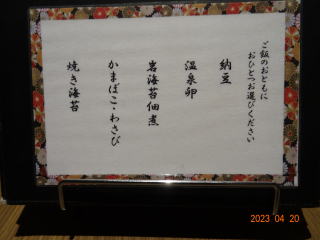 ご飯のおともに
おひとつお選びください
納豆
温泉卵
岩海苔佃煮
かまぼこ・わさび
焼き海苔
2023 04 20